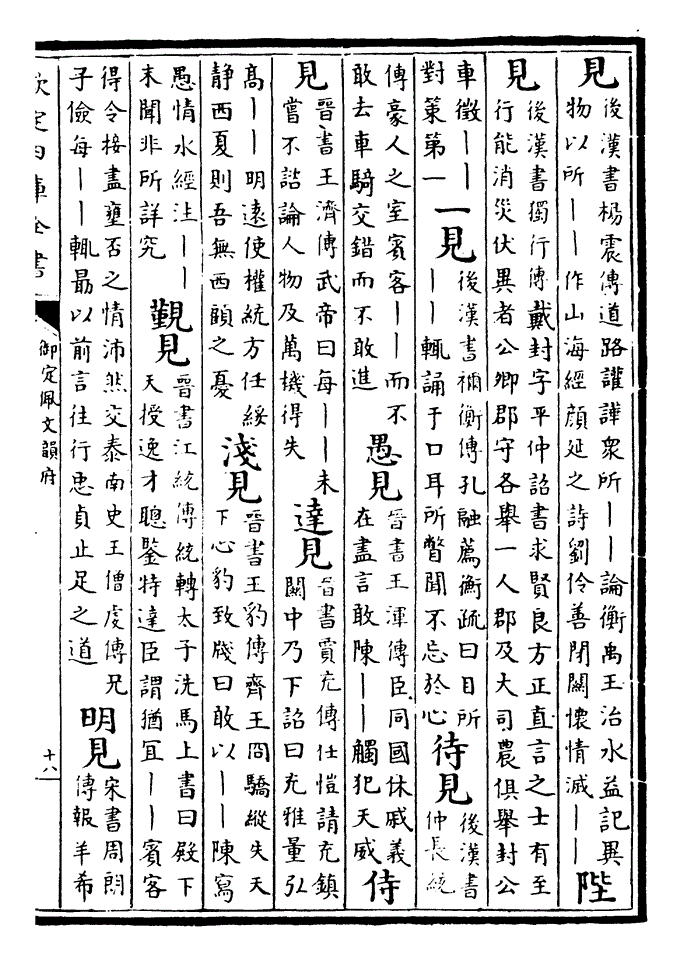 見
後漢書楊震傳道路讙譁衆所丨丨論衡禹王治水益記異
物以所丨丨作山海經顔延之詩劉伶善閉關懷情滅丨丨
陛
見
後漢書獨行傳戴封字平仲詔書求賢良方正直言之士有至
行能消災伏異者公卿郡守各舉一人郡及大司農俱舉封公
車徵丨丨
對策第一
一見
後漢書禰衡傳孔融薦衡疏曰目所
丨丨輒誦于口耳所瞥聞不忘於心
待見
後漢書
仲長統
傳豪人之室賓客丨丨而不
敢去車騎交錯而不敢進
愚見
晉書王渾傳臣同國休戚義
在盡言敢陳丨丨觸犯天威
侍
見
晉書王濟傳武帝曰每丨丨未
嘗不諮論人物及萬機得失
達見
晉書賈充傳任愷請充鎮
關中乃下詔曰充雅量弘
高丨丨明遠使權統方任綏
静西夏則吾無西顧之憂
淺見
晉書王豹傳齊王冏驕縱失天
下心豹致牋曰敢以丨丨陳寫
愚情水經注丨丨
末聞非所詳究
覲見
晉書江統傳統轉太子洗馬上書曰殿下
天授逸才聰鑒特達臣謂猶宜丨丨賓客
得令接盡壅否之情沛然交泰南史王僧虔傳兄
子儉每丨丨輒勗以前言往行忠貞止足之道
明見
宋書周朗
傳報羊希
欽定四庫全書
御定佩文韻府
十八